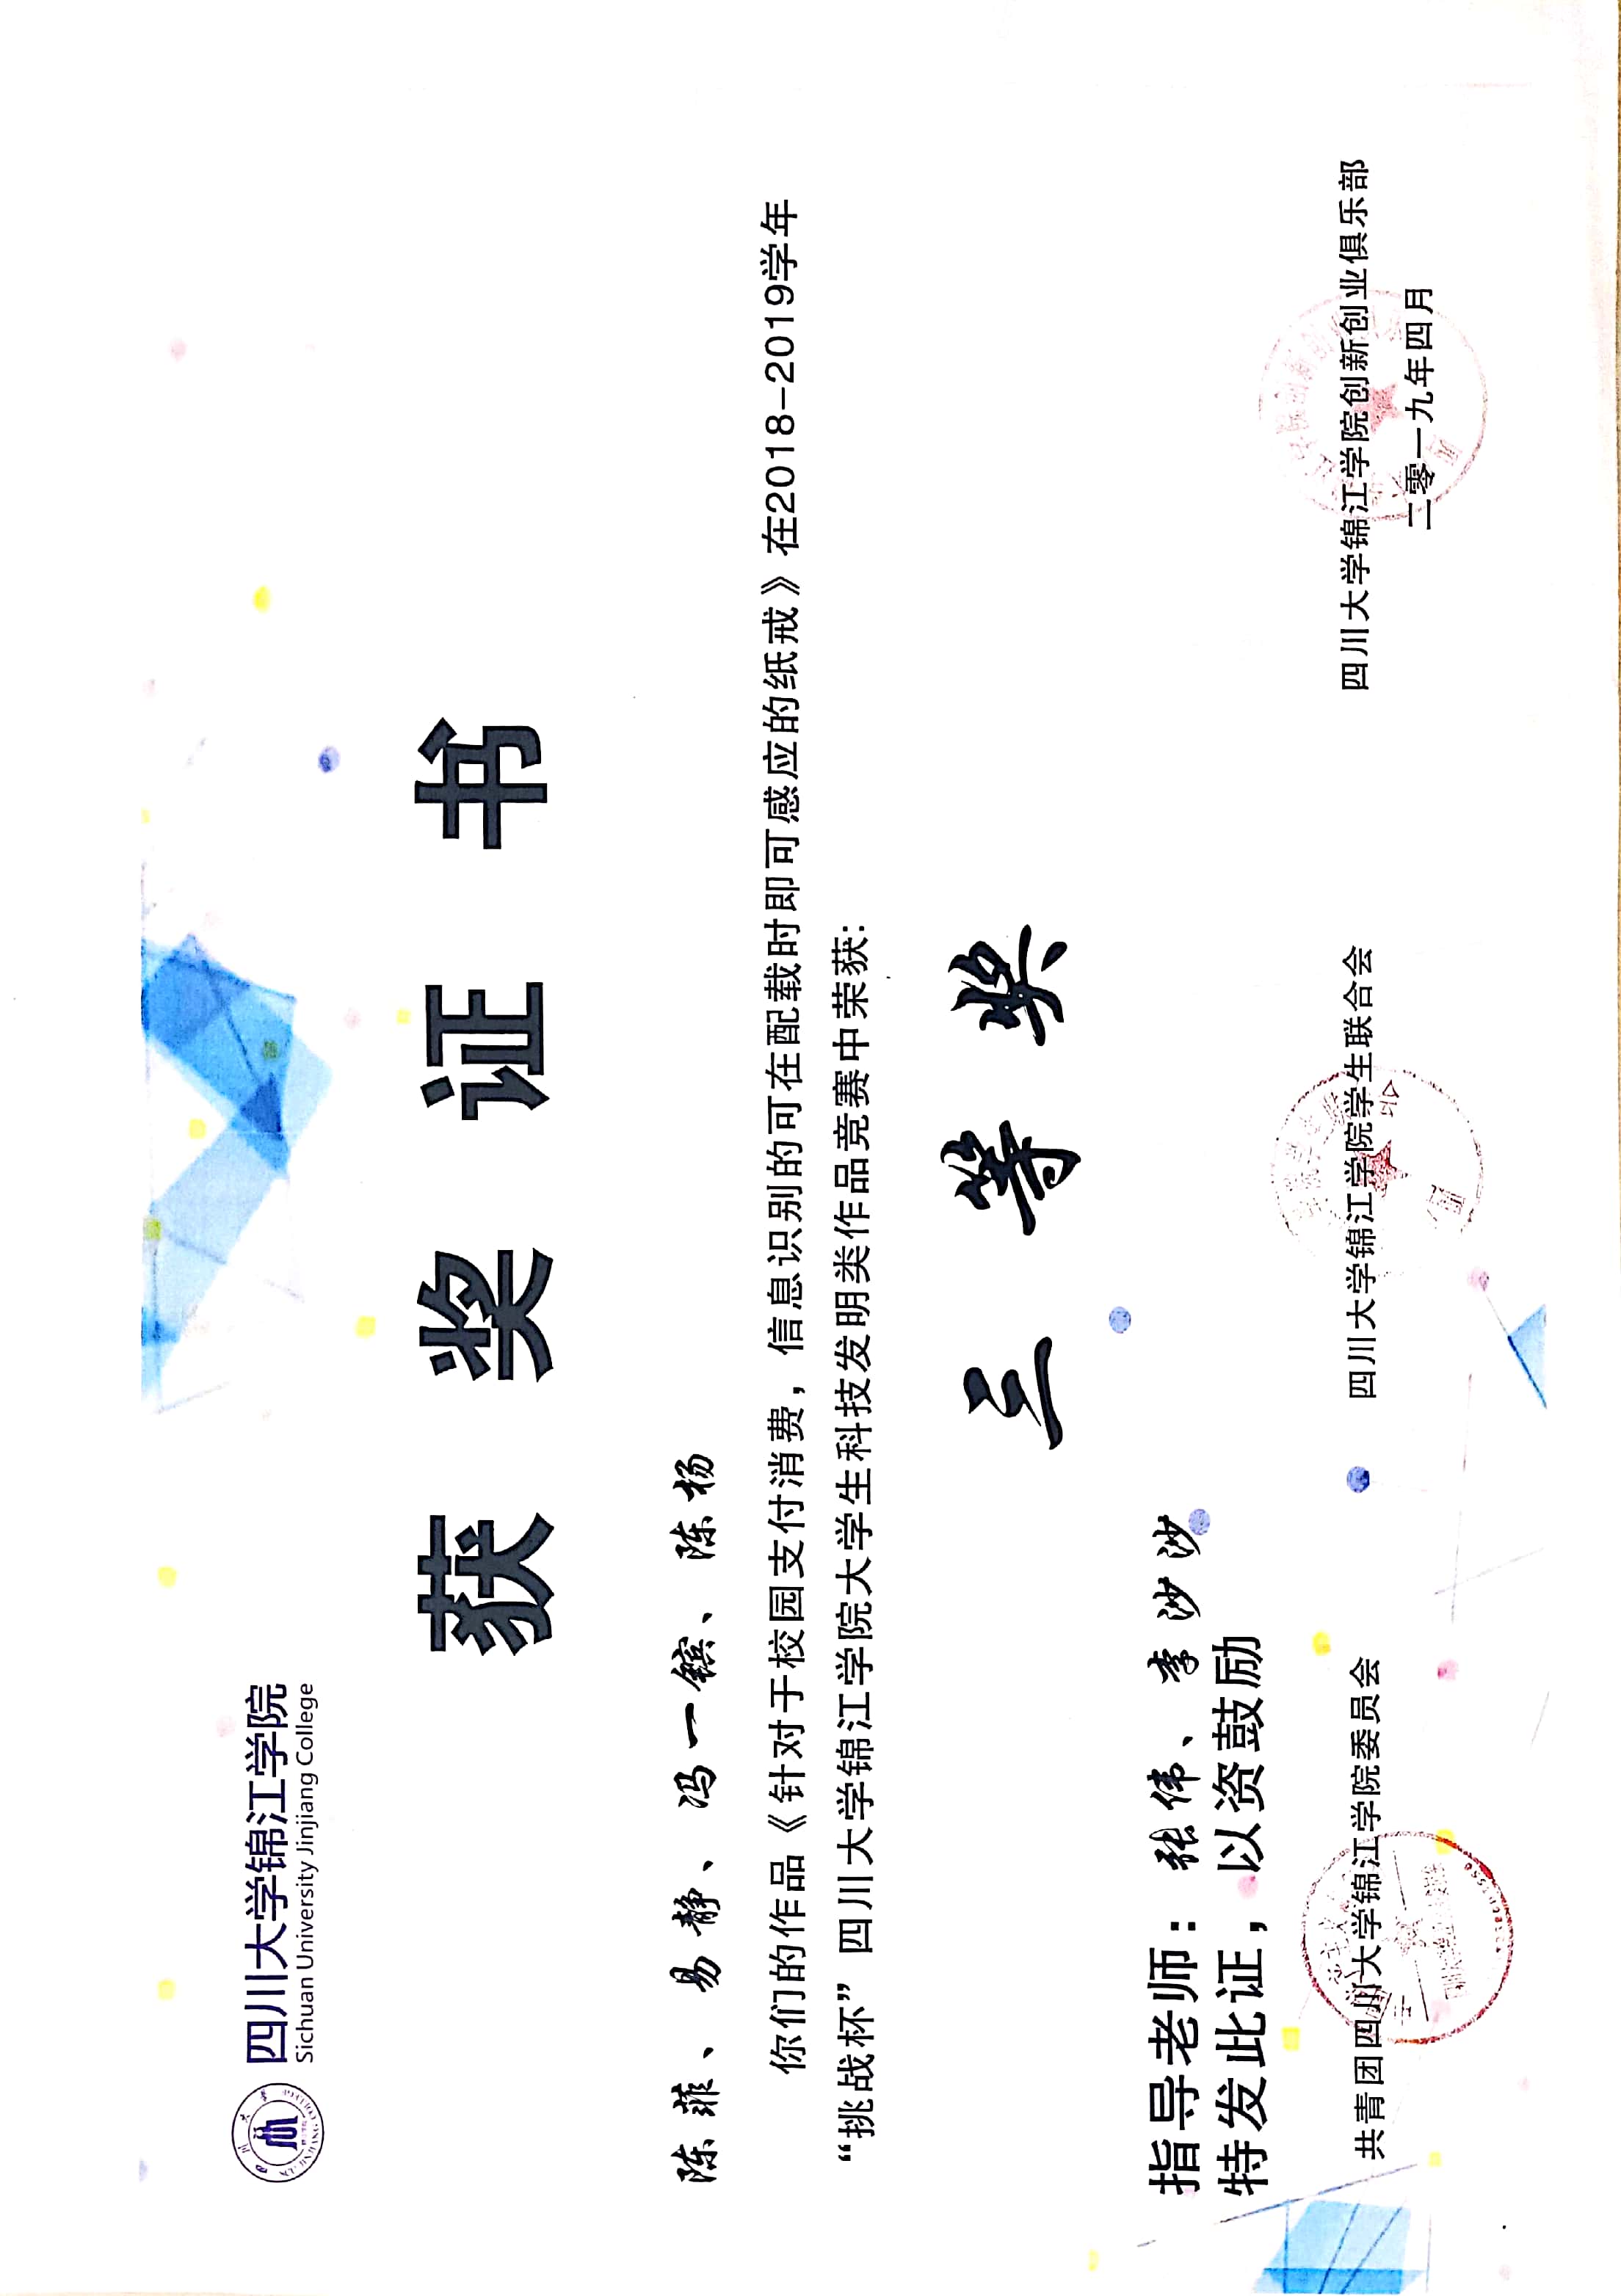 四川大学锦江学院
Sichuan University Jinjiang College
获奖证书
陈菲、易静、冯一镔、陈杨
你们的作品《针对于校园支付消费，信息识别的可在配载时即可感应的纸戒》在2018-2019学年
“挑战杯”四川大学锦江学院大学生科技发明类作品竞赛中荣获：
三等奖
指导老师：张伟、李沙沙
特发此证，以资鼓励
共青团四川大学锦江学院委员会
四川大学锦江学院学生联合会
四川大学锦江学院创新创业俱乐部
二零一九年四月